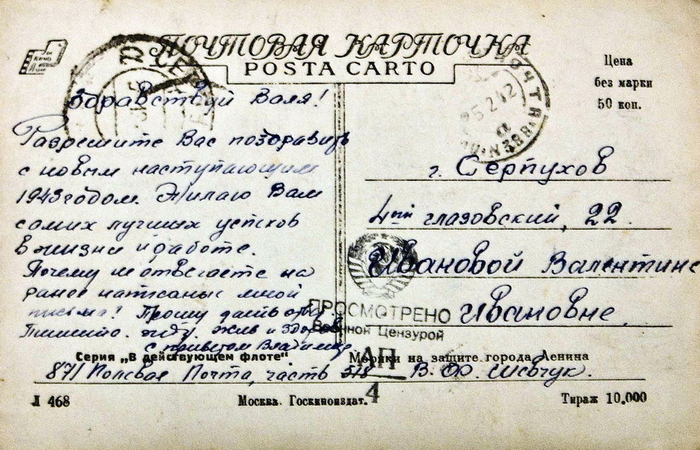 ПОЧТОВАЯ КАРТОЧКА
POSTA CARTO
Цена
без марки
50 коп.
Здравствуй Валя!
Разрешите Вас поздравить
с новым наступающим
1943 годом. Жилаю Вам
самих лучших успехов
в жизни и работе.
Почему не отвечаете на
ранее написаные мной
письма! Прошу дать
Пишите. жду. жив и здоров
с приветом Владимир
г. Серпухов
4ый глазовский, 22.
Ивановой Валентине
Ивановне.
ПРОСМОТРЕНО
Военной Цензурой
Серия „В действующем флоте“
Моряки на защите города Ленина
871 Полевая Почта, часть 518
В. Ф. Шевчук.
Л 468
Москва. Госкиноиздат.
4
Тираж 10.000